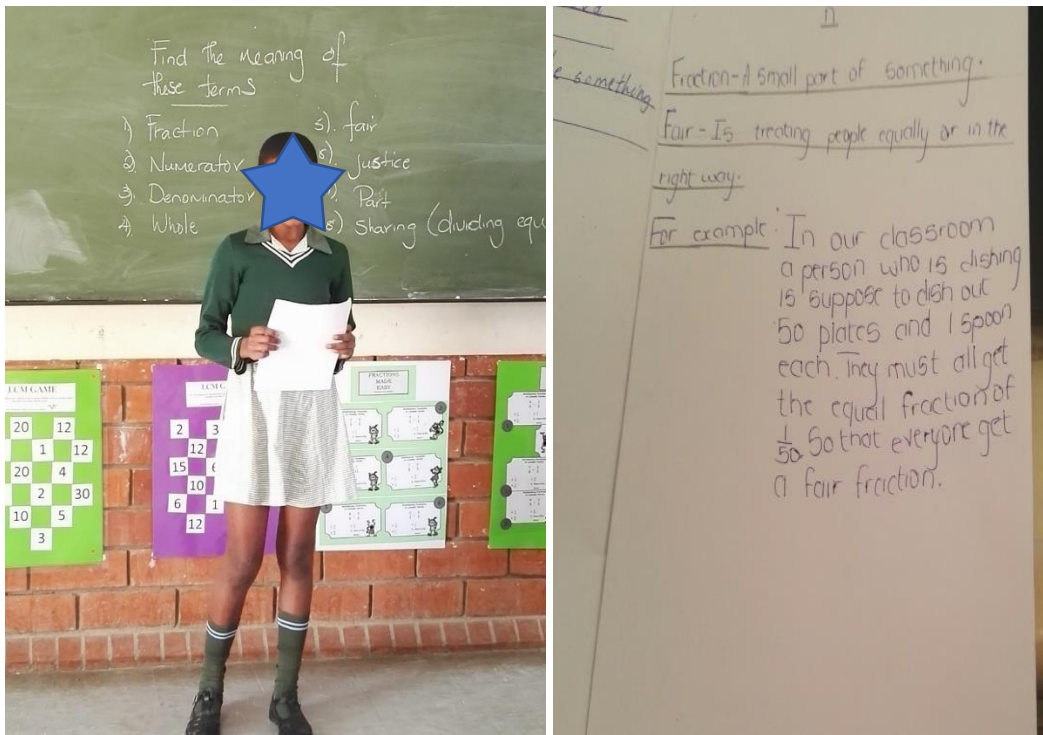 Find the meaning of
these terms
1) Fraction
2) Numerator
3) Denominator
4) Whole
5). fair
justice
Part
sharing (dividing equ
LCM GAME
20 12
1 12
20 4
2 30
10 5
3
LCM G
2 3
12
15 6
10
6 1
12
FRACTIONS
MADE
EASY
n
e something
Fraction-A small part of something.
Fair-Is treating people equally or in the
right way.
For example: In our classroom
a person who is dishing
is suppose to dish out
50 plates and 1 spoon
each. They must all get
the equall fraction of
1/50 So that everyone get
a fair fraction.